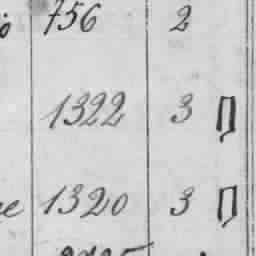 756 2
1322 3 П
1320 3 П